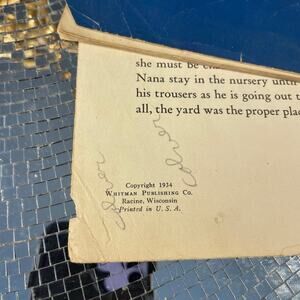 she must be
Nana stay in the nursery until
his trousers as he is going out t
all, the yard was the proper plac
Copyright 1934
WHITMAN PUBLISHING CO.
Racine, Wisconsin
Printed in U. S. A.